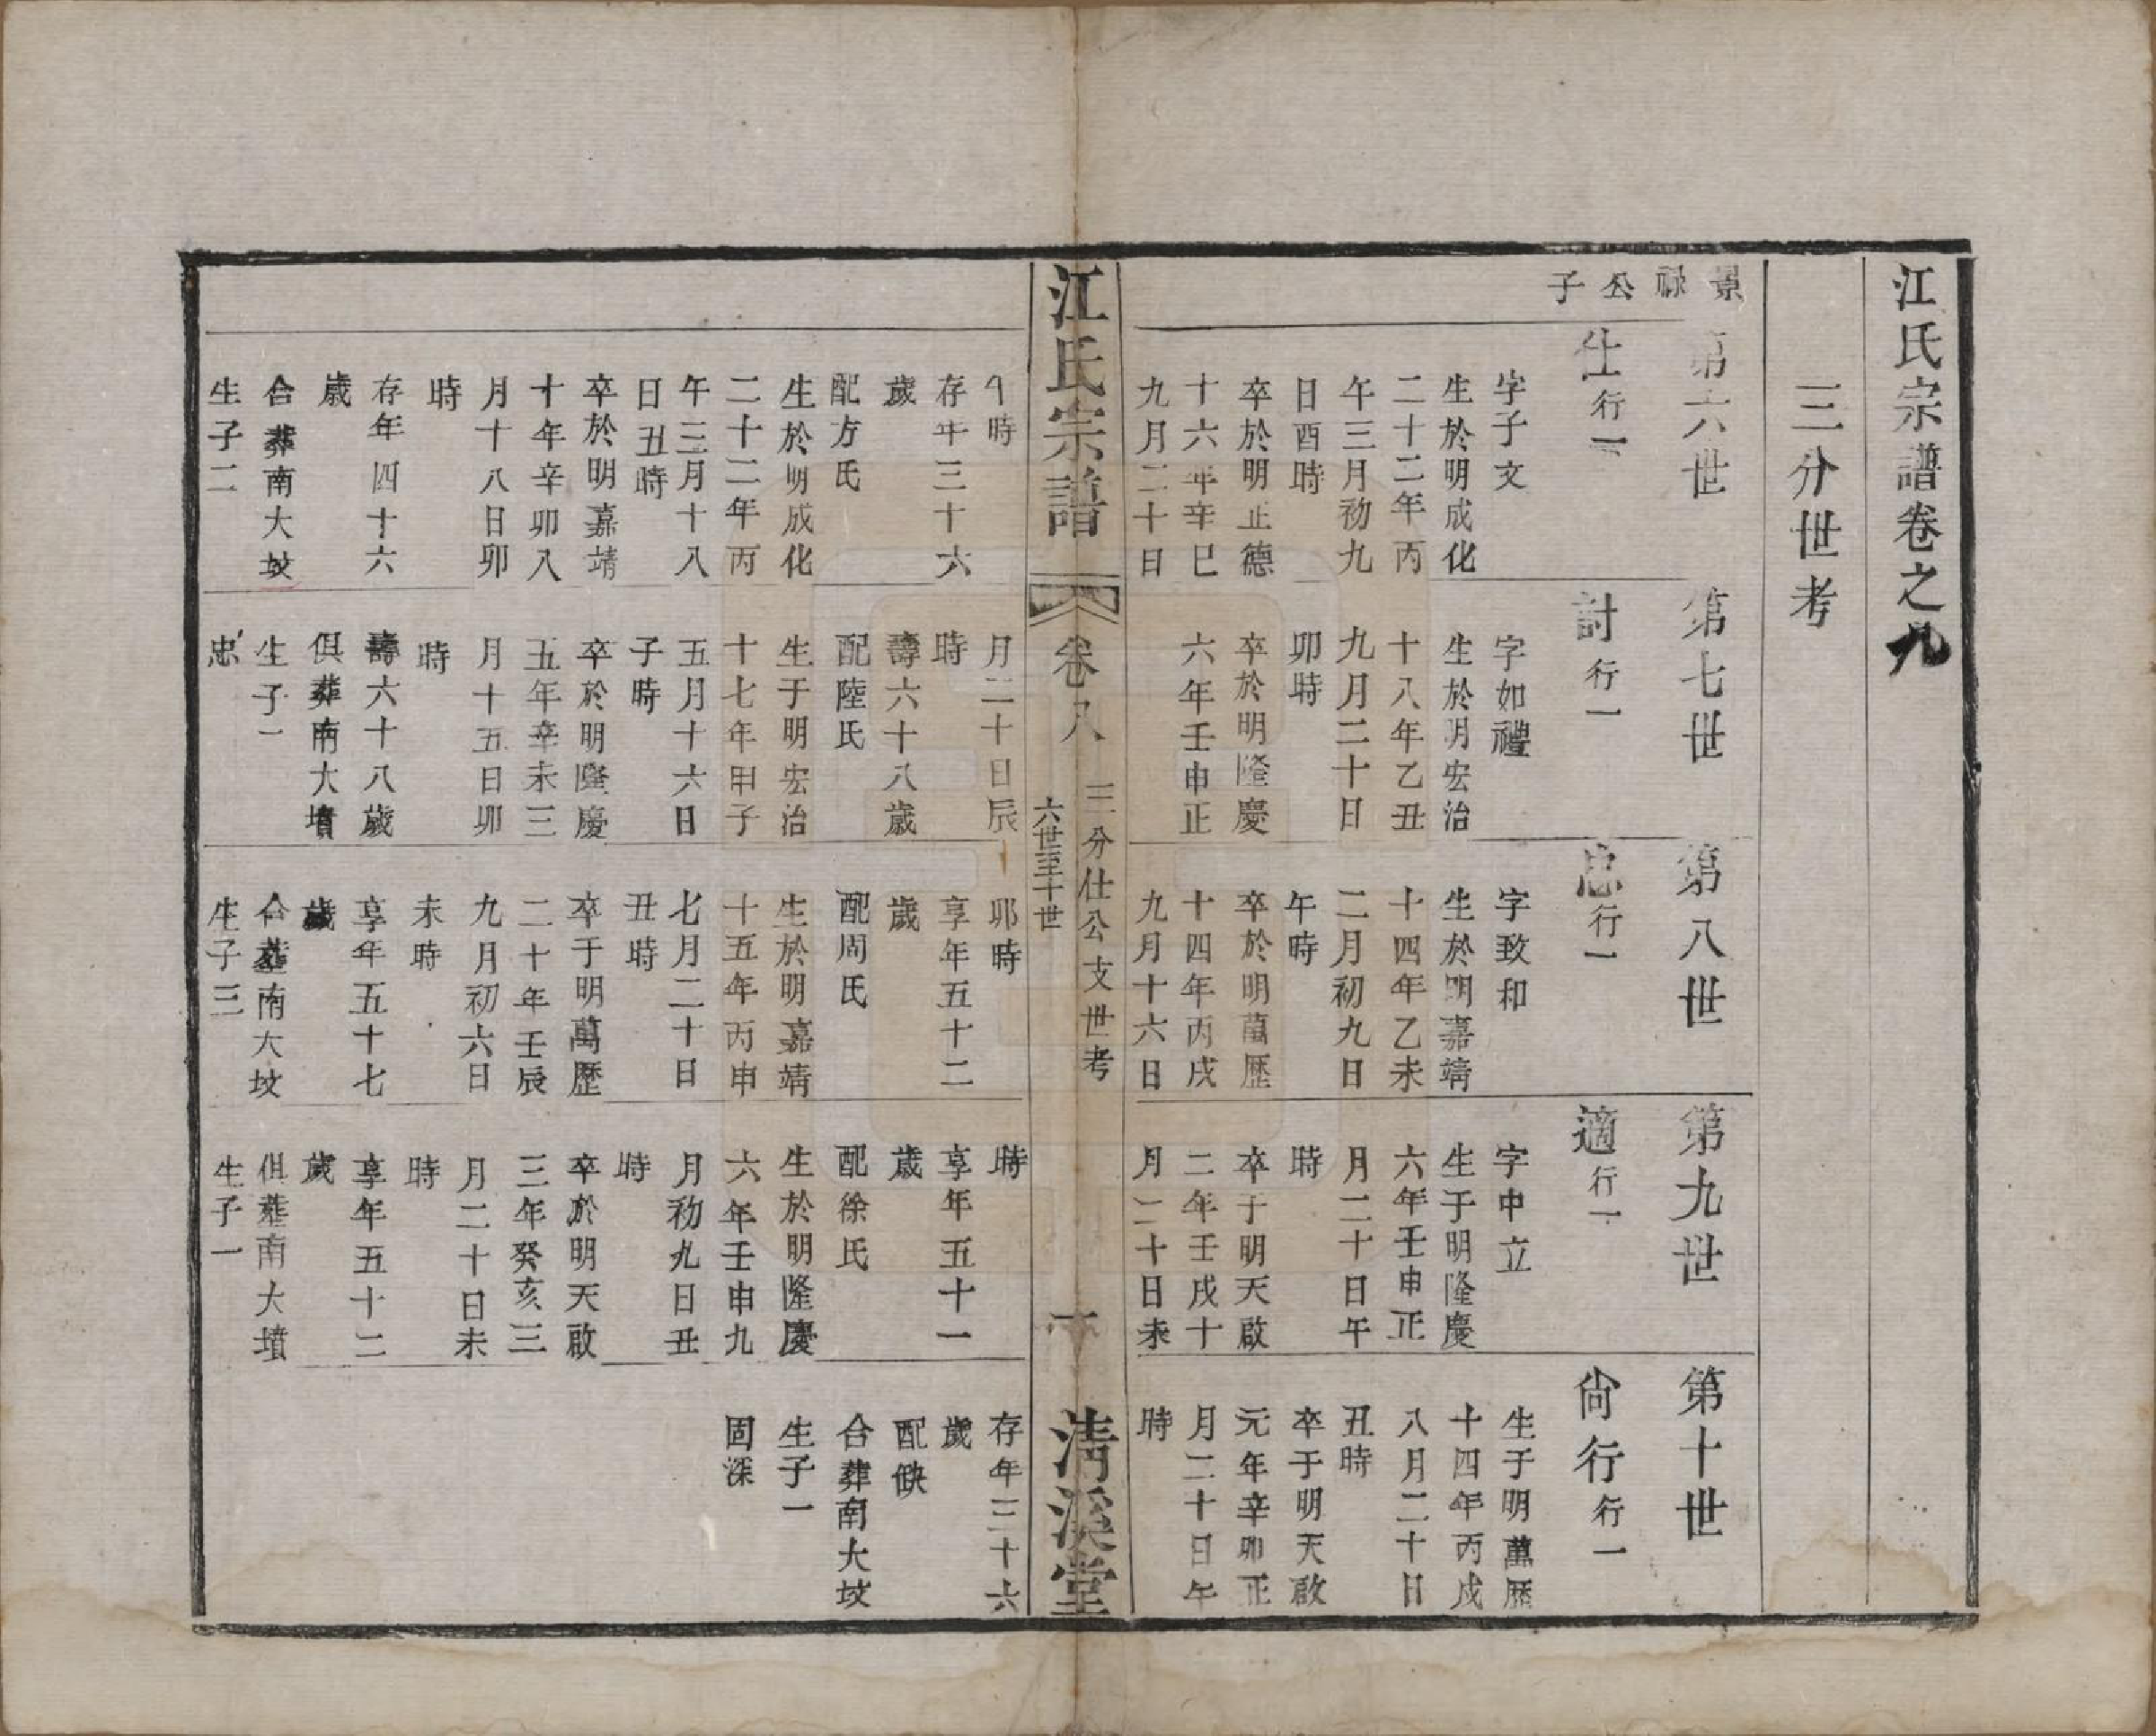 江氏宗譜卷之九
三分世考
景祿公子
第六世
仕行一
字子文
生於明成化
二十二年丙
午三月初九
日酉時
卒於明正德
十六年辛巳
九月二十日
第七世
討行一
字如禮
生於明宏治
十八年乙丑
九月二十日
卯時
卒於明隆慶
六年壬申正
第八世
忠行一
字致和
生於明嘉靖
十四年乙未
二月初九日
午時
卒於明萬歷
十四年丙戌
九月十六日
第九世
適行一
字中立
生于明隆慶
六年壬申正
月二十日午
時
卒于明天啟
二年壬戌十
月二十日未
第十世
尙行行一
生于明萬歷
十四年丙戌
八月二十日
丑時
卒于明天啟
元年辛卯正
月二十日午
時
江氏宗譜
卷八
三分仕公支世考
六世至十世
一
清溪堂
時
存年三十六
歲
配方氏
生於明成化
二十二年丙
午三月十八
日丑時
卒於明嘉靖
十年辛卯八
月十八日卯
時
存年四十六
歲
合葬南大坟
生子二
月二十日辰
時
壽六十八歲
配陸氏
生于明宏治
十七年甲子
五月十六日
子時
卒於明隆慶
五年辛未三
月十五日卯
時
壽六十八歲
俱葬南大墳
生子一
忠
卯時
享年五十二
歲
配周氏
生於明嘉靖
十五年丙申
七月二十日
丑時
卒于明萬歷
二十年壬辰
九月初六日
未時
享年五十七
歲
合葬南大坟
生子三
時
享年五十一
歲
配徐氏
生於明隆慶
六年壬申九
月初九日丑
時
卒於明天啟
三年癸亥三
月二十日未
時
享年五十二
歲
俱葬南大墳
生子一
存年三十六
歲
配缺
合葬南大坟
生子一
固深